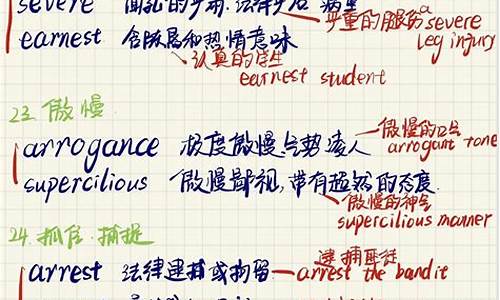 severe
严重的腿伤 a severe
leg injury
earnest 含殷局和热情意味
认真的学生
earnest student
23. 傲慢
arrogance 极度傲慢.气势凌人
傲慢的口气
arrogant tone
supercilious 傲慢鄙视,带有超然的态度
傲慢的神气
supercilious manner
24. 抓住.捕捉
arrest 法律逮捕或拘留
逮捕匪徒
arrest the bandit